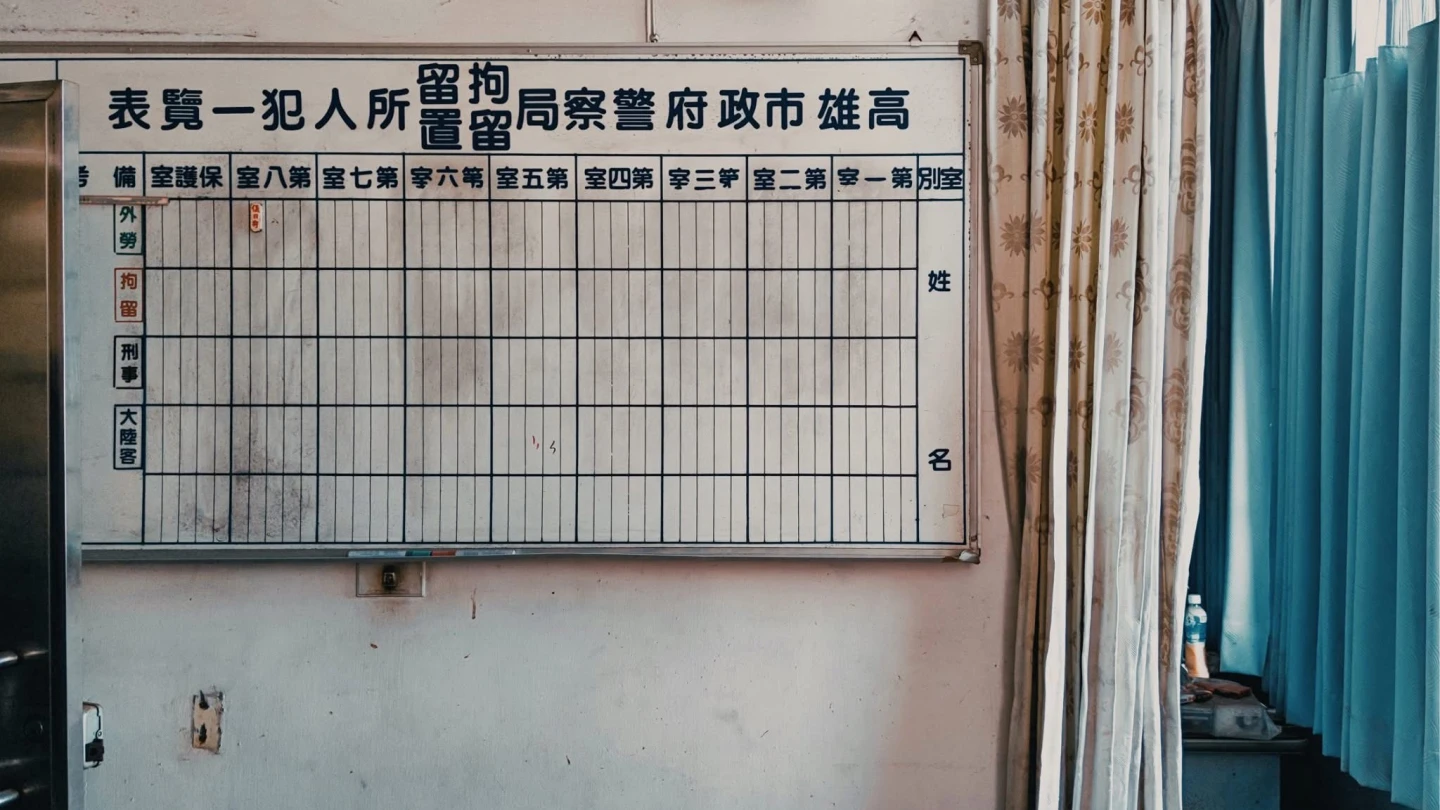 高雄市政府警察局拘留留置所人犯一覽表
室別 第一室 第二室 第三室 第四室 第五室 第六室 第七室 第八室 保護室 備
姓名
外勞
拘留
刑事
大陸客